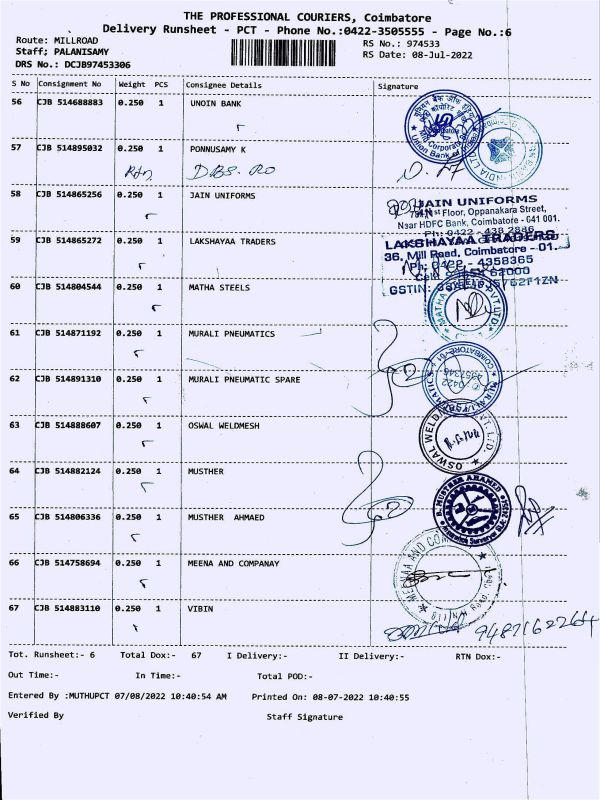 THE PROFESSIONAL COURIERS, Coimbatore
Delivery Runsheet - PCT - Phone No.:0422-3505555 - Page No.:6
Route: MILLROAD
RS No.: 974533
Staff; PALANISAMY
RS Date: 08-Jul-2022
DRS No.: DCJB97453306
S No Consignment No Weight PCS Consignee Details Signature
56 CJB 514688883 0.250 1 UNOIN BANK
57 CJB 514895032 0.250 1 PONNUSAMY K
Rtn DBS. RO
58 CJB 514865256 0.250 1 JAIN UNIFORMS
JAIN UNIFORMS
1st Floor, Oppanakara Street,
Near HDFC Bank, Coimbatore - 641 001.
Ph: 0422 - 438 2846
59 CJB 514865272 0.250 1 LAKSHAYAA TRADERS
LAKSHAYAA TRADERS
36, Mill Road, Coimbatore - 01.
Ph: 0422 - 4358365
GSTIN:
60 CJB 514804544 0.250 1 MATHA STEELS
61 CJB 514871192 0.250 1 MURALI PNEUMATICS
62 CJB 514891310 0.250 1 MURALI PNEUMATIC SPARE
63 CJB 514888607 0.250 1 OSWAL WELDMESH
64 CJB 514882124 0.250 1 MUSTHER
B. MUSTHER AHAMED
65 CJB 514806336 0.250 1 MUSTHER AHMAED
66 CJB 514758694 0.250 1 MEENA AND COMPANAY
67 CJB 514883110 0.250 1 VIBIN
9487162264
Tot. Runsheet:- 6 Total Dox:- 67 I Delivery:- II Delivery:- RTN Dox:-
Out Time:- In Time:- Total POD:-
Entered By :MUTHUPCT 07/08/2022 10:40:54 AM Printed On: 08-07-2022 10:40:55
Verified By Staff Signature